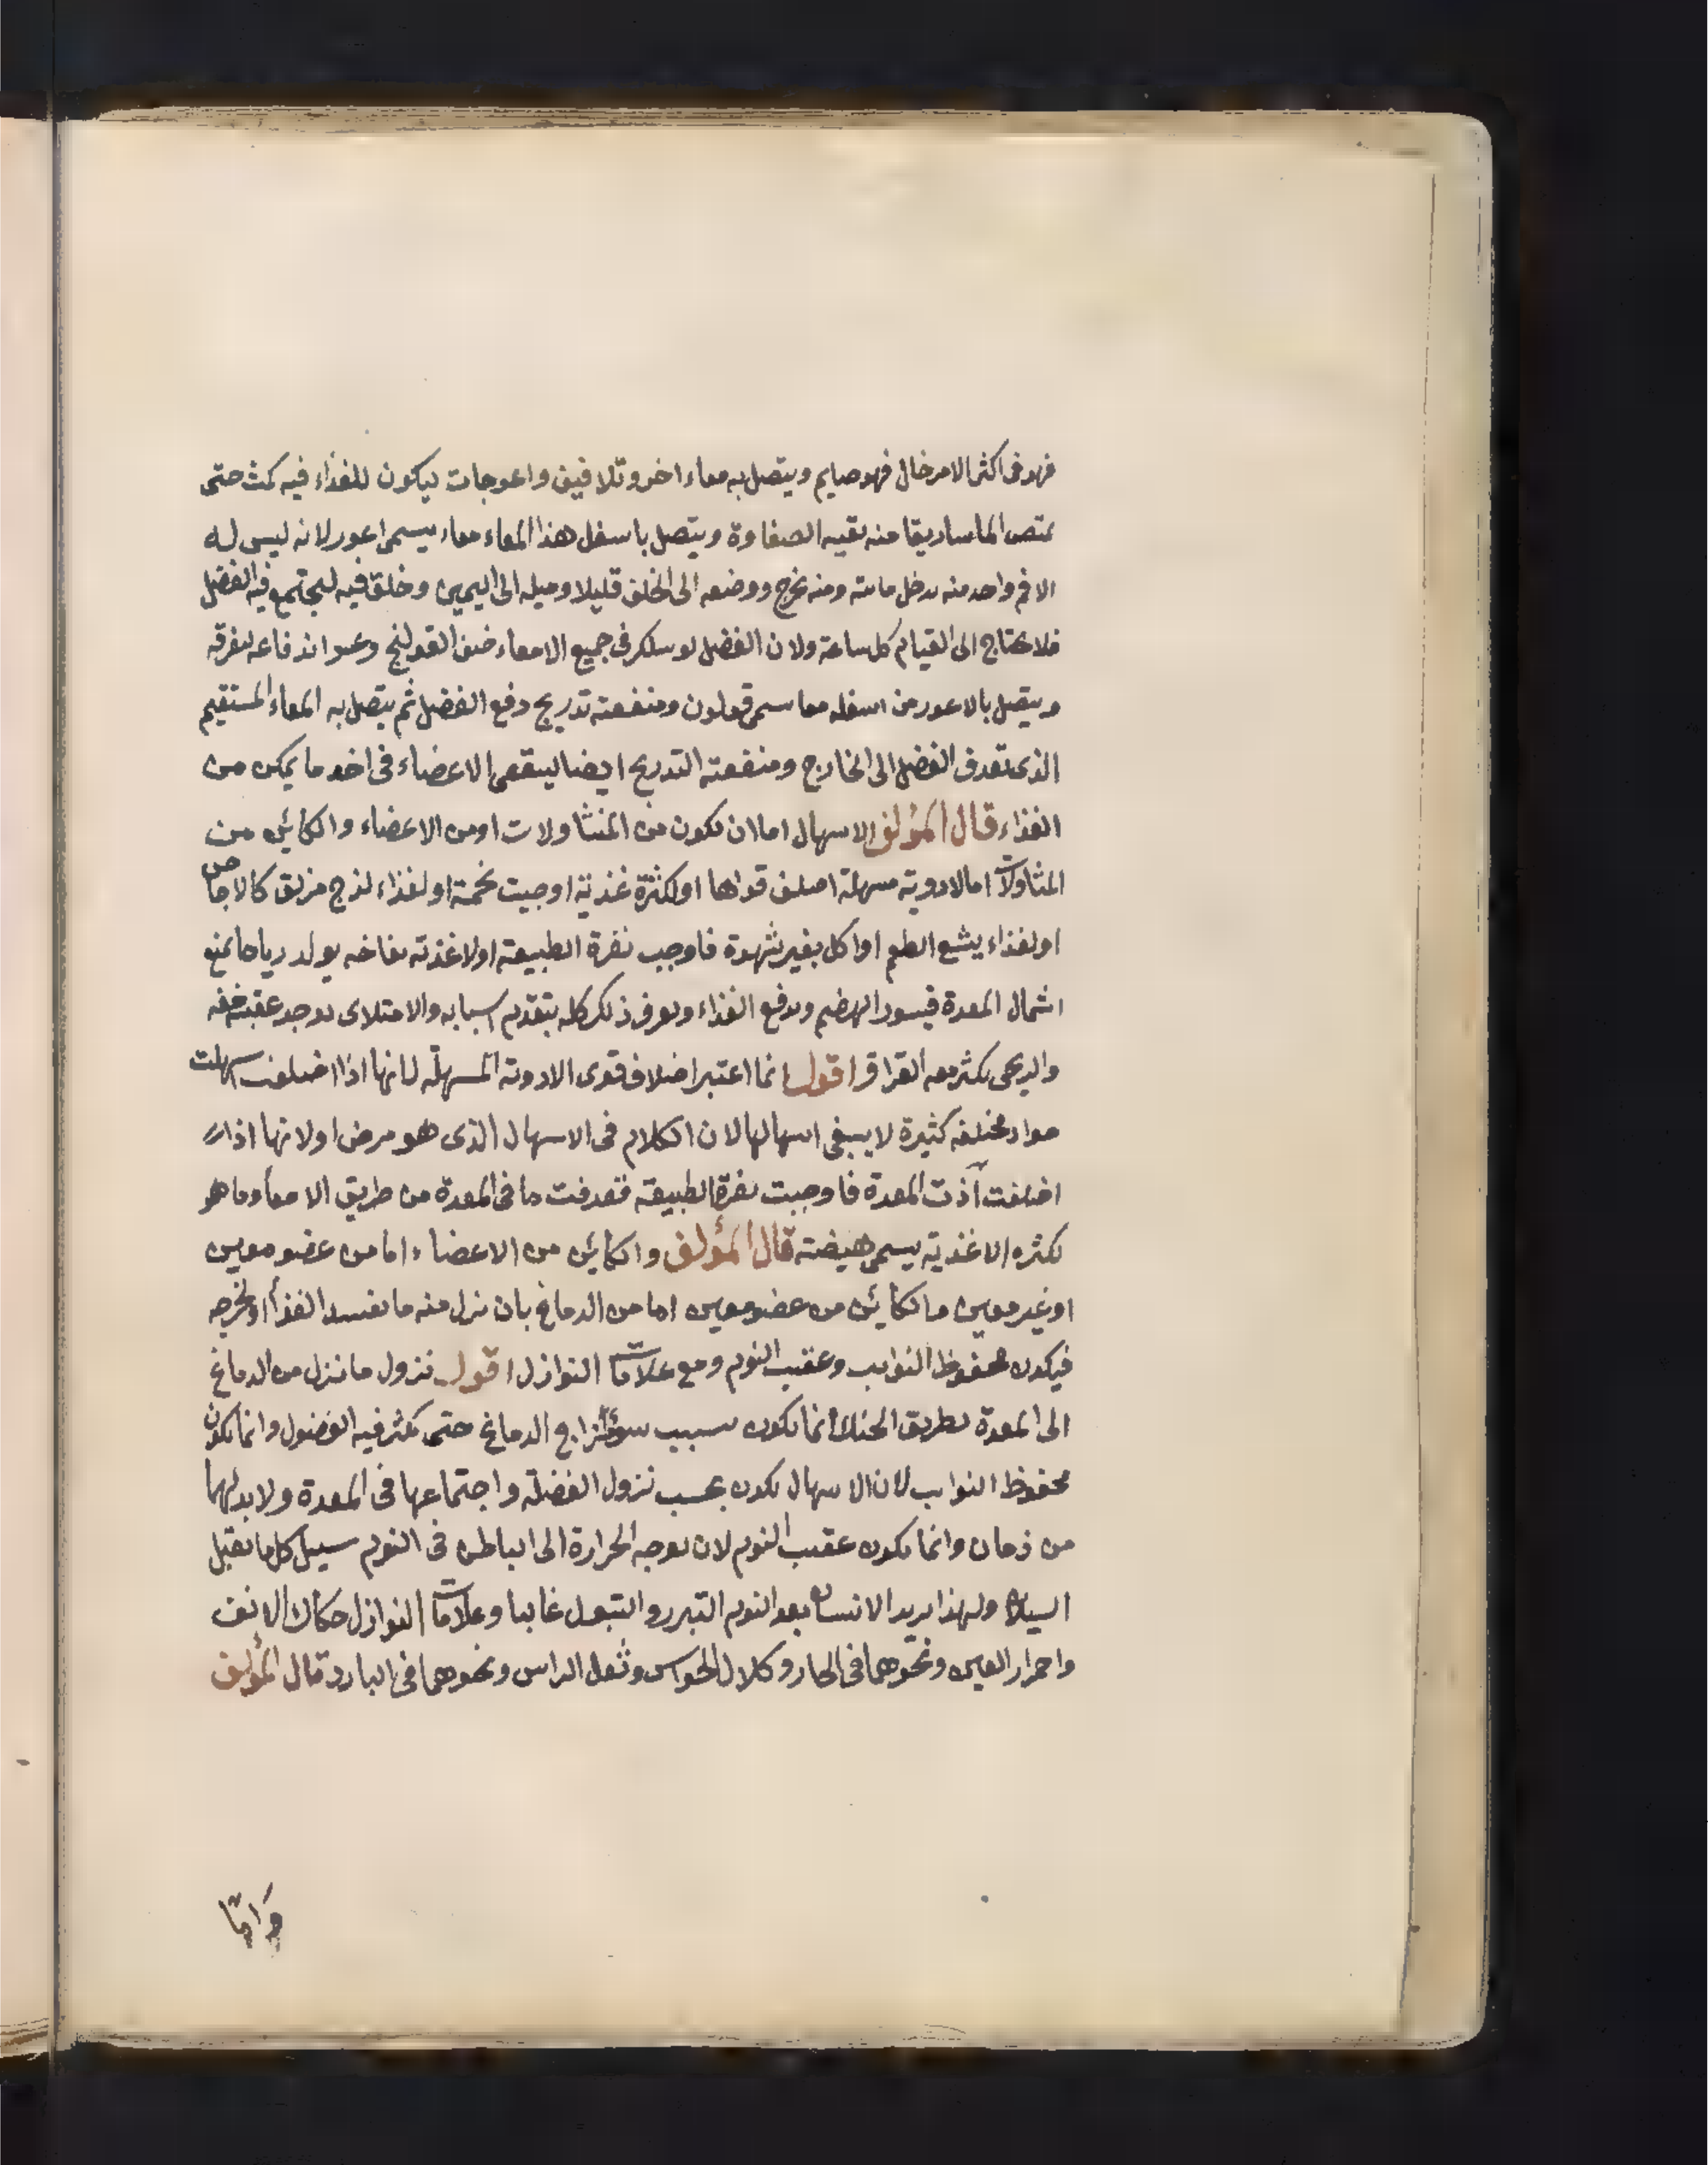 فهو فى اكثر الامر خال فهو صايم ويتصل به معاء اخر وتلافيف واعوجات ليكون للغذاء فيه مكث حتى
تمتص الماساريقا منه بقيه الصفاوة ويتصل باسفل هذا المعاء معاء يسمى اعور لانه ليس له
الا فم واحد منه يدخل ومنه يخرج ووضعه الى الخلف قليلا وميله الى اليمين وخلق فيه ليجتمع فيه الفضل
فلا يحتاج الى القيام كل ساعة ولان الفضل لو سلك فى جميع الامعاء خيف القولنج وعسر اندفاعه لتفرقه
ويتصل بالاعور من اسفله معا يسمى قولون ومنفعته تدريج دفع الفضل ثم يتصل به المعاء المستقيم
الذى يقذف الفضل الى الخارج ومنفعته التدريج ايضا ليستقصى الاعضاء فى اخذ ما يمكن من
الغذاء قال المؤلف الاسهال اما ان يكون من المتناولات او من الاعضاء والكائن من
المتناولات اما لادوية مسهلة اختلف قواها او لكثرة غذية اوجبت تخمة او لغذاء لزج مزلق كالاجاص
او لغذاء بشع الطعم او اكل بغير شهوة فاوجب نفرة الطبيعة او لاغذية نفاخه يولد رياحا يمنع
اشتمال المعدة فيسوء الهضم ويدفع الغذاء ويعرف ذلك كله بتقدم اسبابه والامتلاى يوجد عقبه خفه
والريحى يكثر معه القراقر اقول انما اعتبر اختلاف قوى الادوية المسهلة لانها اذا اختلفت اسهلت
مواد مختلفه كثيرة لا ينبغى اسهالها لان الكلام فى الاسهال الذى هو مرض او لانها اذا
اختلفت آذت المعدة فاوجبت نفرة الطبيعة فقذفت ما فى المعدة من طريق الامعاء وما هو
لكثره الاغذية يسمى هيضته قال المؤلف والكائن من الاعضاء اما من عضو معين
او غير معين والكائن من عضو معين اما من الدماغ بان ينزل منه ما يفسد الغذاء او يخرجه
فيكون محفوظ النوايب وعقيب النوم ومع علامات النوازل اقول نزول ما ينزل من الدماغ
الى المعدة بطريق الحنك انما يكون بسبب سوء مزاج الدماغ حتى يكثر فيه الفضول وانما يكون
محفوظ النوايب لان الاسهال يكون بحسب نزول الفضلة واجتماعها فى المعدة ولا بد لهما
من زمان وانما يكون عقيب النوم لان توجه الحرارة الى الباطن فى النوم يسيل كل ما يقبل
السيلان ولهذا يريد الانسان بعد النوم التبرز والتبول غالبا وعلامات النوازل حكاك الانف
واحمرار العين ونحوهما فى الحار وكلال الحواس وثقل الراس ونحوهما فى البارد قال المؤلف
وامّا